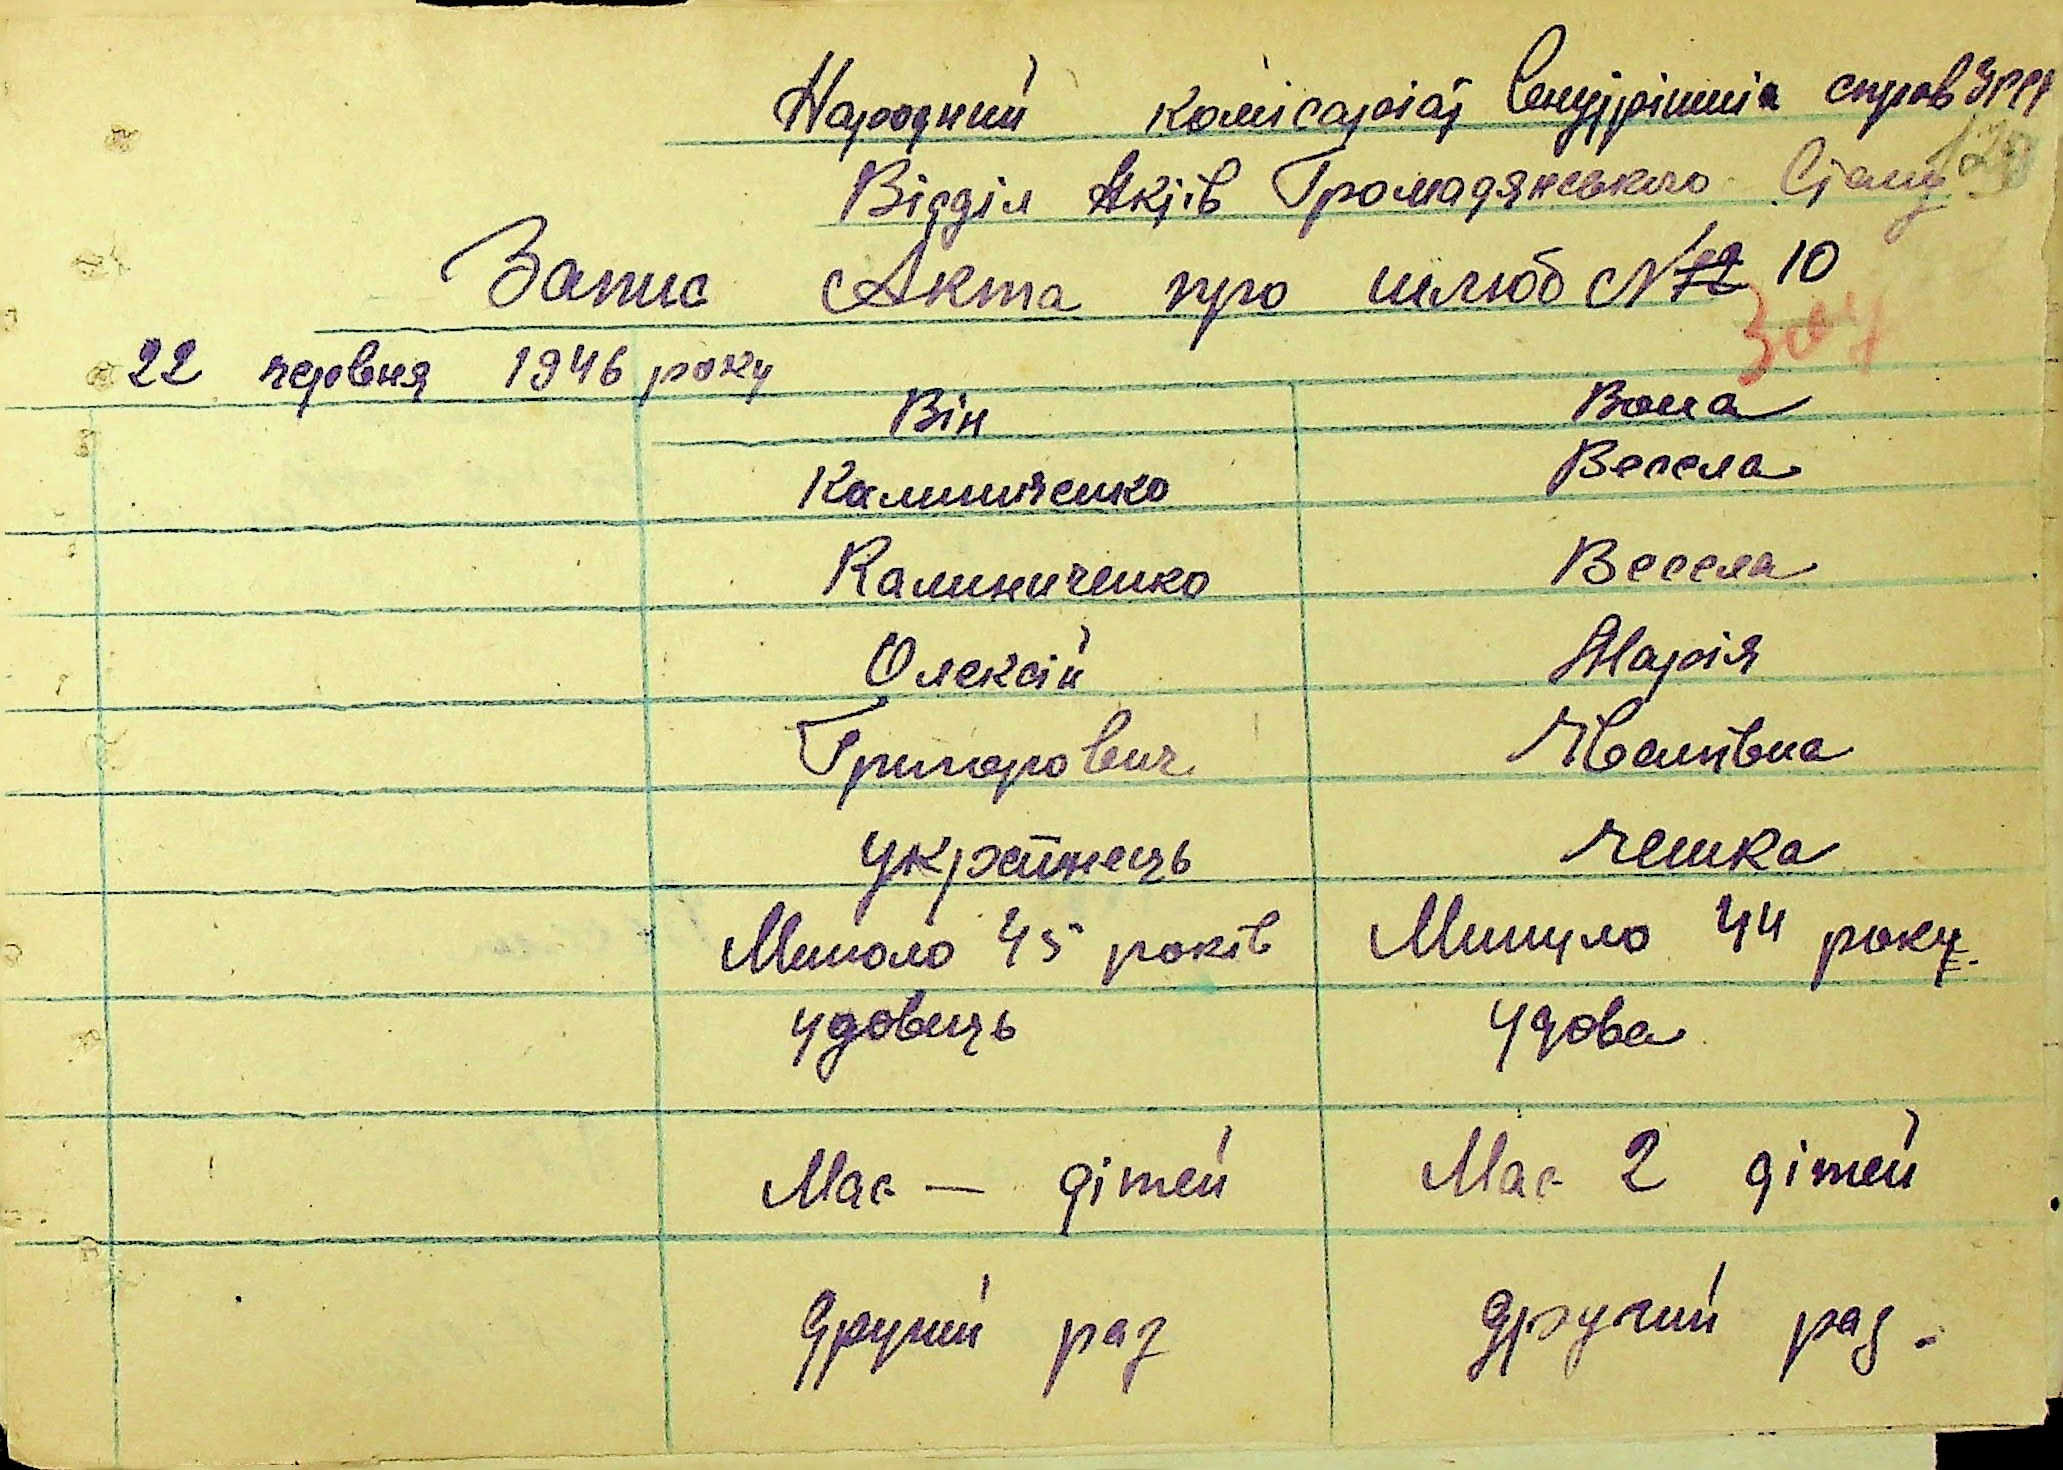 Народний комісаріат Внутрішніх справ УРСР
Відділ Актів Громадянського Стану
Запис Акта про шлюб № 10
22 червня 1946 року
Він Вона
Калиниченко Весела
Калиниченко Весела
Олексій Марія
Григорович Іванівна
українець чешка
Миноло 45 років Минуло 44 року.
удовець удова
Має — дітей Має 2 дітей
другий раз другий раз.